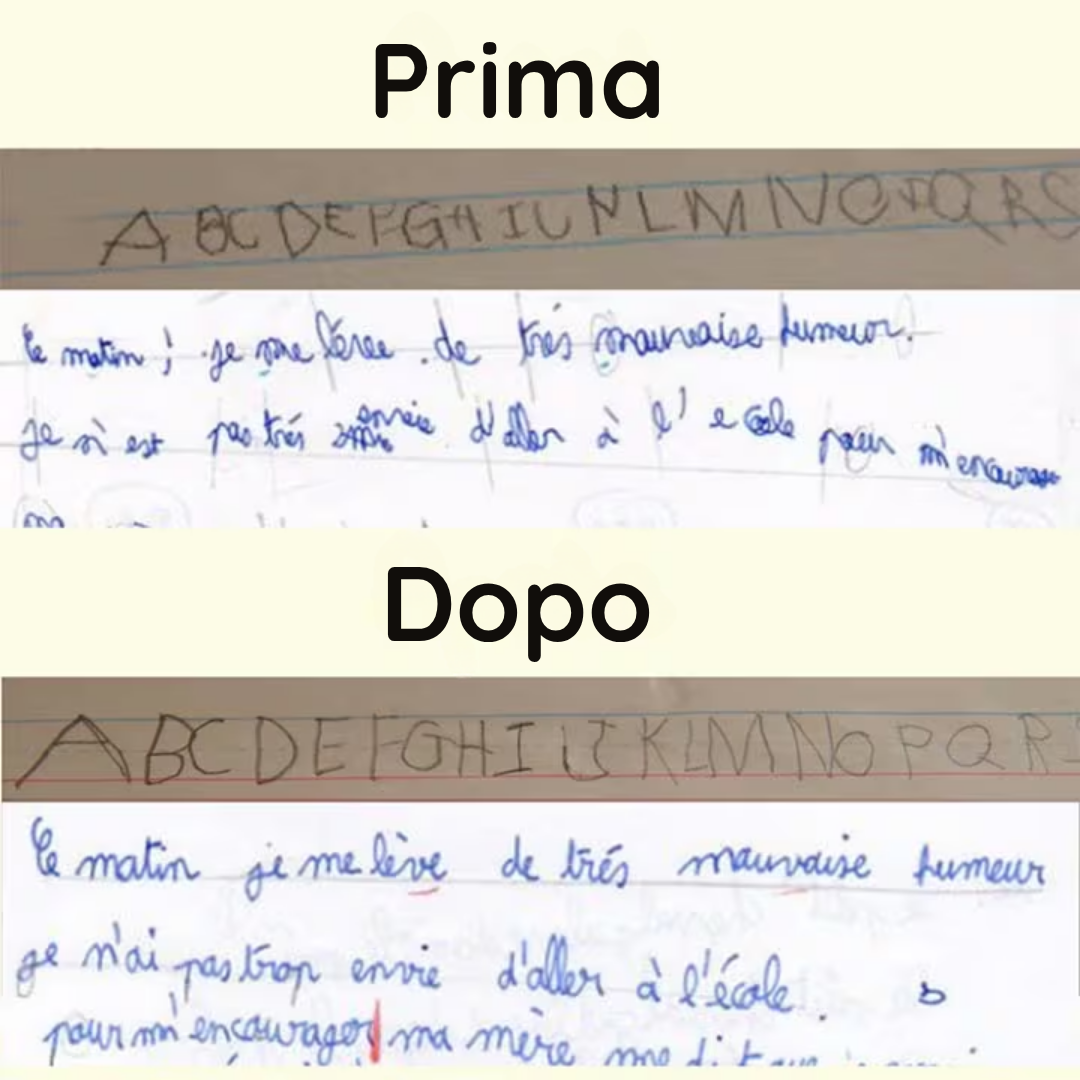 Prima
A B C D E F G H I U N L M N O P Q R S
le matin, je me lévee. de trés mauvaise humeur.
je n'est pas trés envie d'aller à l'ecole pour m'encourager
Dopo
A B C D E F G H I IJ K L M N O P Q R
Le matin je me lève de trés mauvaise humeur
je n'ai pas trop envie d'aller à l'école.
pour m'encourager ma mère me dit que